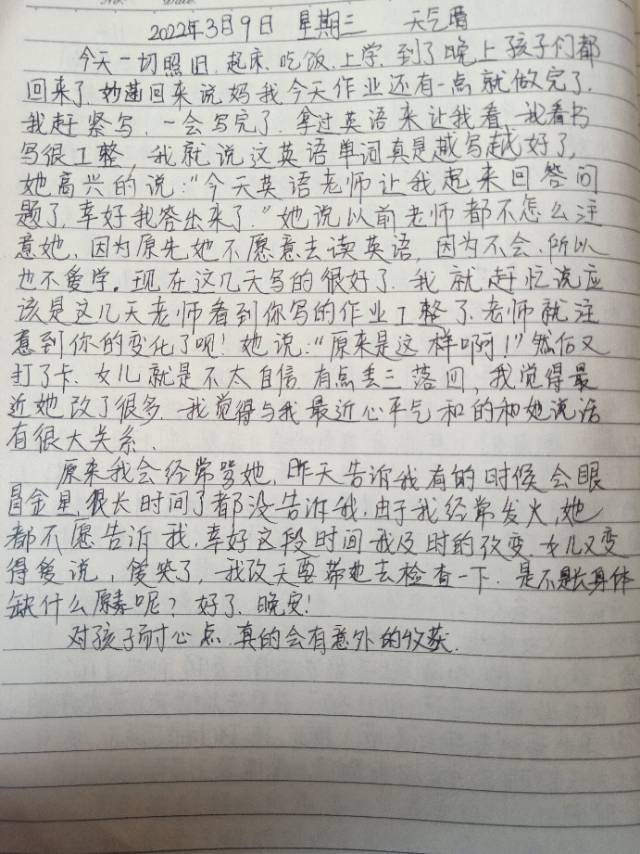 No: Date:
2022年3月9日 星期三 天气晴
今天一切照旧.起床.吃饭.上学.到了晚上孩子们都
回来了.妙菡回来说妈我今天作业还有一点就做完了.
我赶紧写.一会写完了.拿过英语来让我看.我看书
写很工整.我就说这英语单词真是越写越好了,
她高兴的说:“今天英语老师让我起来回答问
题了.幸好我答出来了.”她说以前老师都不怎么注
意她,因为原先她不愿意去读英语,因为不会.所以
也不爱学。现在这几天写的很好了.我就赶忙说应
该是这几天老师看到你写的作业工整了.老师就注
意到你的变化了呗!她说:“原来是这样啊!”然后又
打了卡.女儿就是不太自信有点丢三落四,我觉得最
近她改了很多.我觉得与我最近心平气和的和她说话
有很大关系.
原来我会经常骂她,昨天告诉我有的时候会眼
冒金星,很长时间了都没告诉我.由于我经常发火,她
都不愿告诉我.幸好这段时间我及时的改变.女儿又变
得爱说,爱笑了,我改天要带她去检查一下.是不是长身体
缺什么原素呢?好了.晚安!
对孩子耐心点.真的会有意外的收获.